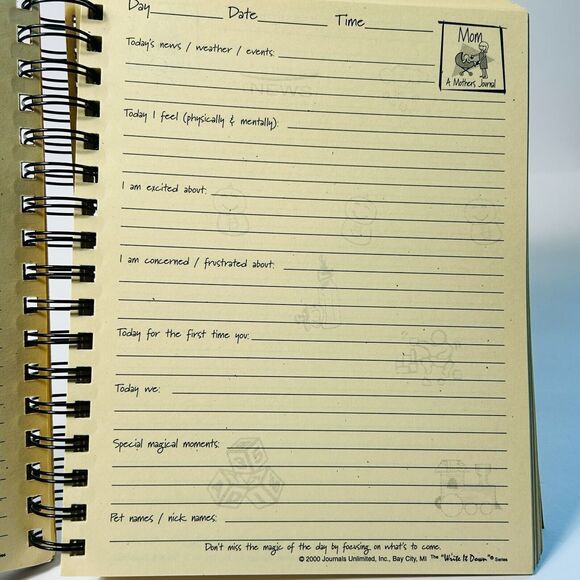 Day Date Time
Mom
A Mother's Journal
Today's news / weather / events:
NEWS
Today I feel (physically & mentally):
I am excited about:
I am concerned / frustrated about:
Today for the first time you:
Today we:
Special magical moments:
Pet names / nick names:
Don't miss the magic of the day by focusing on what's to come.
© 2000 Journals Unlimited, Inc., Bay City, MI The "Write It Down"® Series